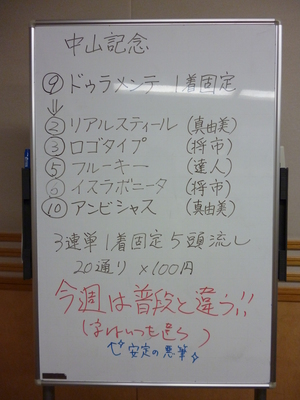 中山記念
⑨ ドゥラメンテ 1着固定
⇓
② リアルスティール (真由美)
③ ロゴタイプ (将市)
⑤ フルーキー (達人)
⑥ イスラボニータ (将市)
⑩ アンビシャス (真由美)
3連単1着固定5頭流し
20通り ×100円
今週は普段と違う!!
安定の悪筆